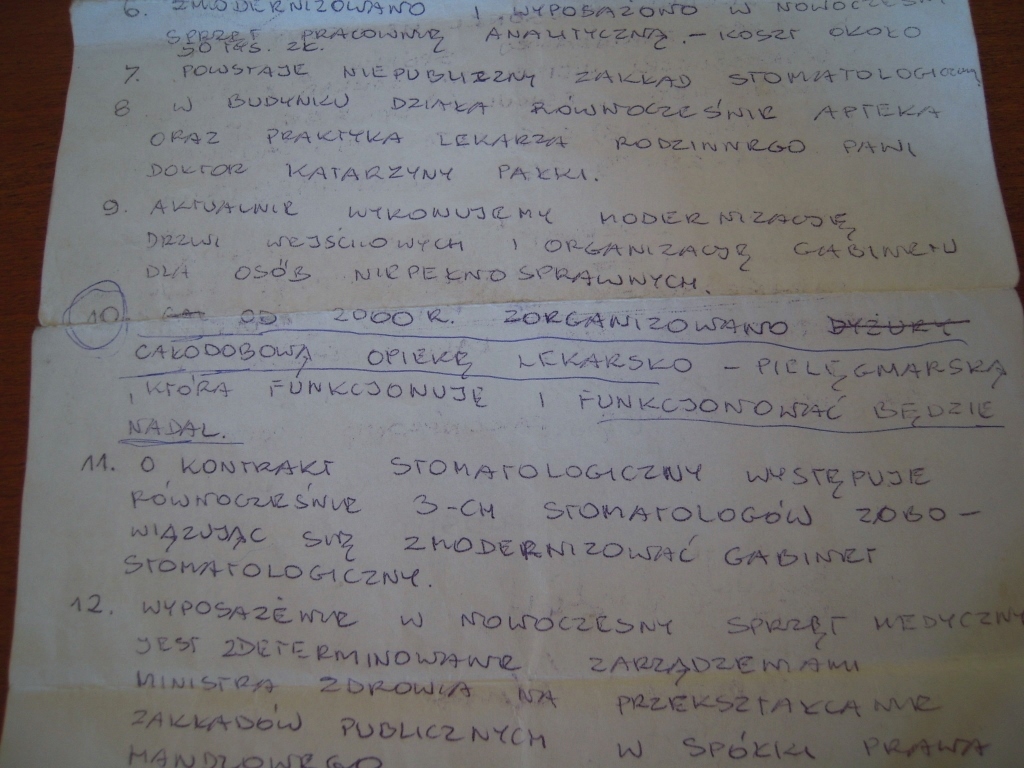 6. ZMODERNIZOWANO I WYPOSAŻONO W NOWOCZESNY
SPRZĘT PRACOWNIĘ ANALITYCZNĄ. - KOSZT OKOŁO
50 TYS. ZŁ.
7. POWSTAJE NIEPUBLICZNY ZAKŁAD STOMATOLOGICZNY
8 W BUDYNKU DZIAŁA RÓWNOCZEŚNIE APTEKA
ORAZ PRAKTYKA LEKARZA RODZINNEGO PANI
DOKTOR KATARZYNY PAKKI.
9. AKTUALNIE WYKONUJEMY MODERNIZACJĘ
DRZWI WEJŚCIOWYCH I ORGANIZACJĘ GABINETU
DLA OSÓB NIEPEŁNOSPRAWNYCH.
10. OD 2000 R. ZORGANIZOWANO DYŻURY
CAŁODOBOWĄ OPIEKĘ LEKARSKO - PIELĘGNIARSKĄ
, KTÓRA FUNKCJONUJE I FUNKCJONOWAĆ BĘDZIE
NADAL.
11. O KONTRAKT STOMATOLOGICZNY WYSTĘPUJE
RÓWNOCZEŚNIE 3-CH STOMATOLOGÓW ZOBO-
WIĄZUJĄC SIĘ ZMODERNIZOWAĆ GABINET
STOMATOLOGICZNY.
12. WYPOSAŻENIE W NOWOCZESNY SPRZĘT MEDYCZNY
JEST ZDETERMINOWANE ZARZĄDZENIAMI
MINISTRA ZDROWIA NA PRZEKSZTAŁCANIE
ZAKŁADÓW PUBLICZNYCH W SPÓŁKI PRAWA
HANDLOWEGO